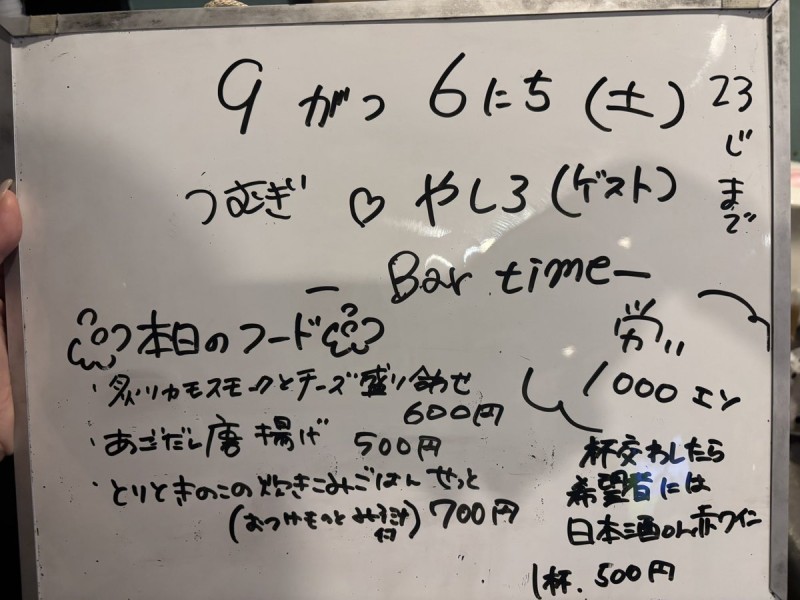 9がつ6にち(土)
23じまで
つむぎ♡やしろ(ゲスト)
ー Bar time ー
本日のフード
・炙りカモスモークとチーズ盛り合わせ
600円
・あごだし唐揚げ
500円
・とりときのこの炊きこみごはんせっと
(おつけものとみそ汁付)
700円
1000エン
杯交わしたら
希望者には
日本酒or赤ワイン
1杯.500円